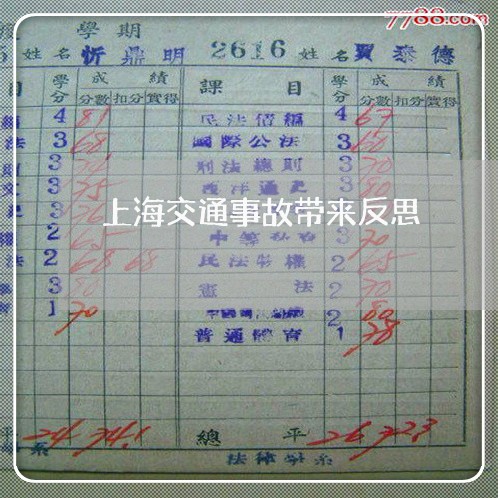 7788.com
學期
姓名 忻鼎明 2616 姓名 賈泰德
目 學分 成績 課目 學分 成績
分數 扣分 實得 分數 扣分 實得
4 81 民法債編 4 67
法 3 68 國際公法 3 60
3 刑法總則 3 70
3 75 西洋通史 3 80
上海交通事故带来反思
2 65 3 70
法 2 68 68 民法物權 2 65
3 80 憲法 2 70
1 70 2 80
普通體育 1 78
平 24 74.1 總平 26 72.3
系 法律學系